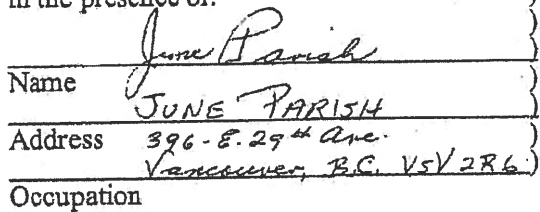 in the presence of: )
June Parish )
Name )
JUNE PARISH )
Address 396-E.29th Ave. )
Vancouver, B.C. V5V 2R6 )
Occupation